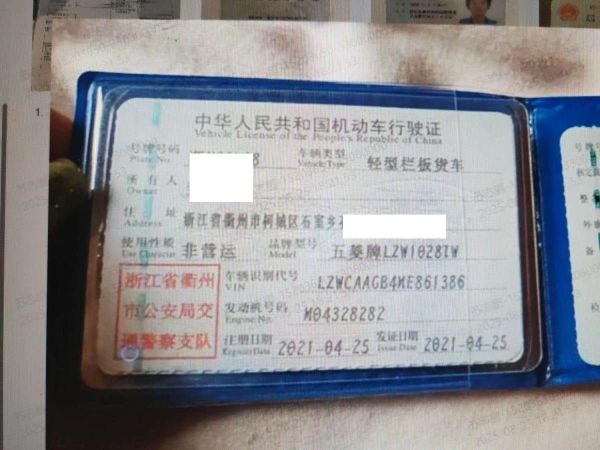 1.
中华人民共和国机动车行驶证
Vehicle License of the People's Republic of China
号牌号码 8 车辆类型 轻型栏板货车
Plate No. Vehicle Type
所有人
Owner
住址 浙江省衢州市柯城区石室乡
Address
使用性质 非营运 品牌型号 五菱牌LZW1028TW
Use Character Model
浙江省衢州
市公安局交
通警察支队
车辆识别代号 LZWCAAGB4ME861386
VIN
发动机号码 M04328282
Engine No.
注册日期 2021-04-25 发证日期 2021-04-25
Register Date Issue Date